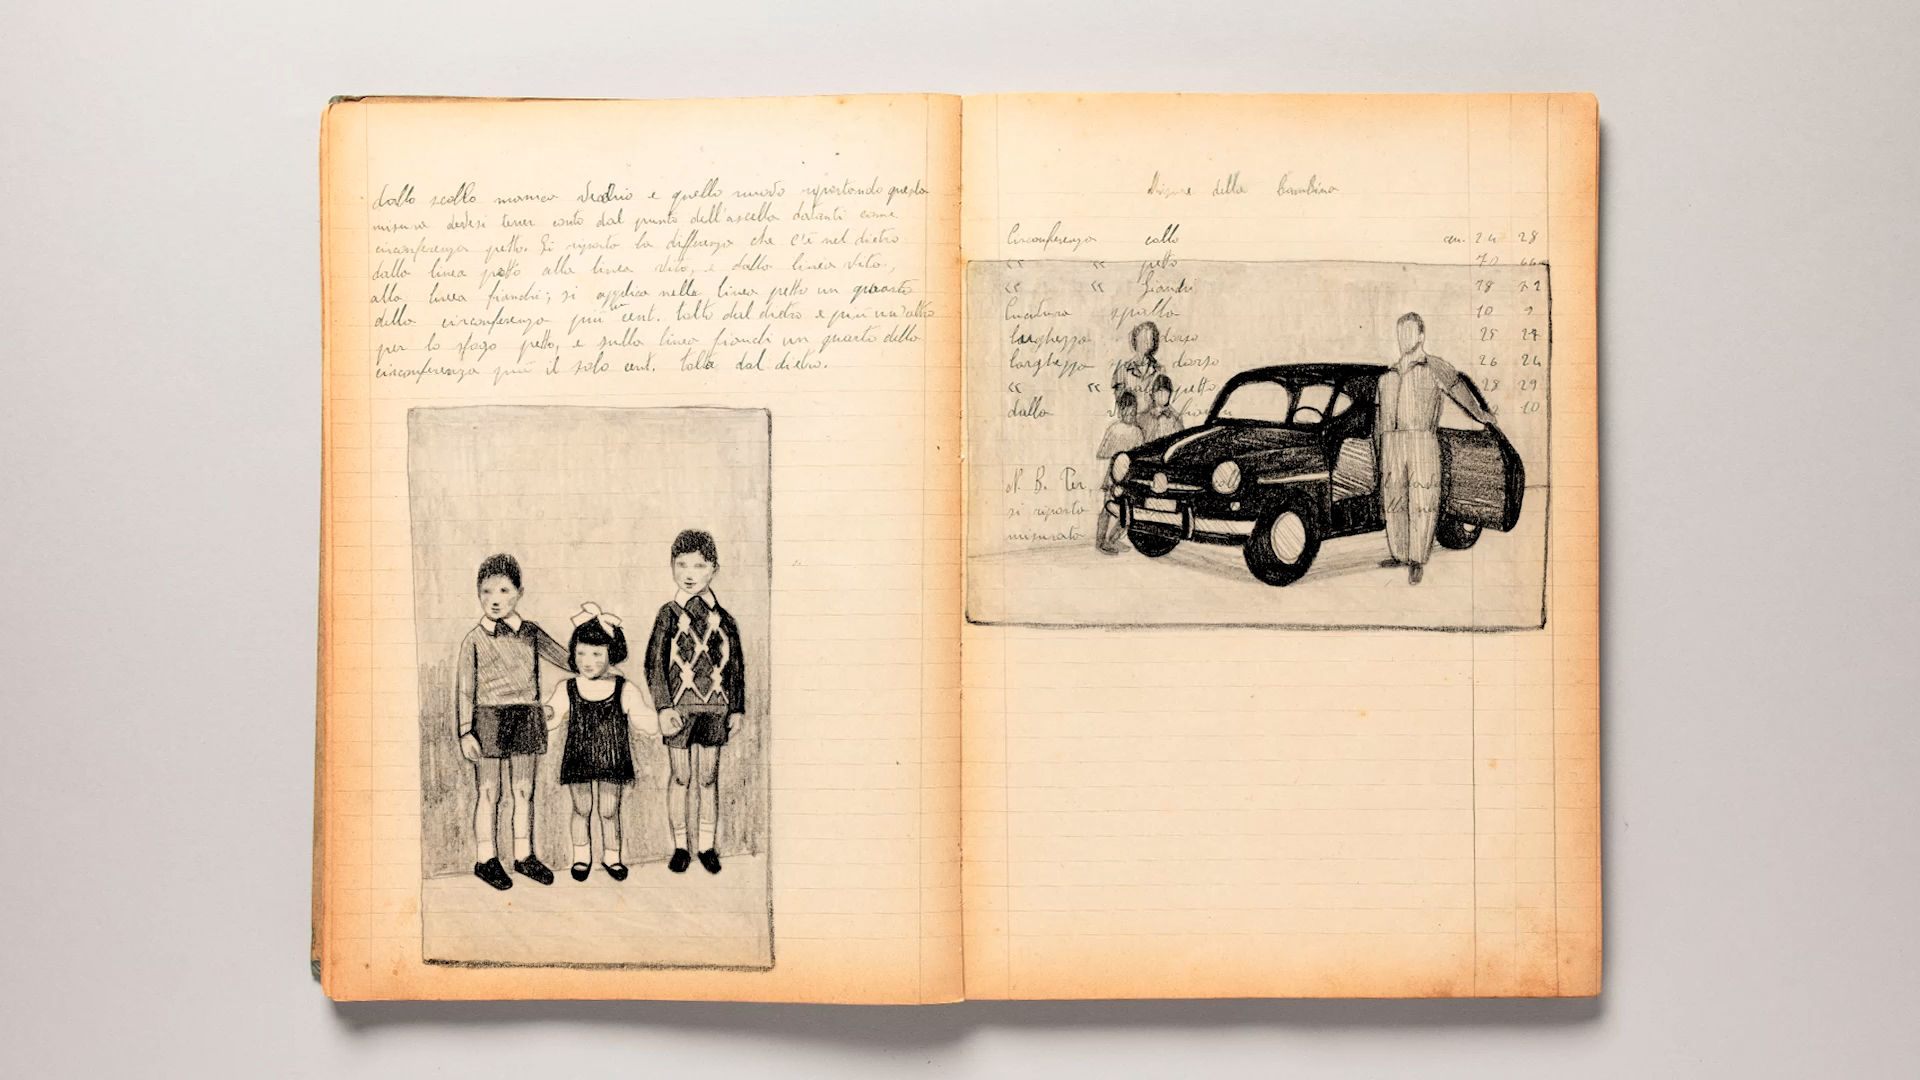 dallo scollo manica vecchio e quello nuovo riportando questa
misura devesi tener conto dal punto dell'ascella davanti come
circonferenza petto. Si riporta la differenza che c'è nel dietro
dalla linea petto alla linea vita, e dalla linea vita,
alla linea fianchi; si applica nella linea petto un quarto
della circonferenza più un cent. tolto dal dietro e più un altro
per lo sfogo petto, e sulla linea fianchi un quarto della
circonferenza più il solo cent. tolto dal dietro.
Misure della bambina
Circonferenza collo cm. 24 28
“ “ petto 70 66
“ “ fianchi 78 72
Lunghezza spalla 10 9
larghezza dorso 25 27
larghezza dorso 26 24
“ “ petto 28 29
dalla vita fianchi 10
N. B. Per
si riporta
misurato